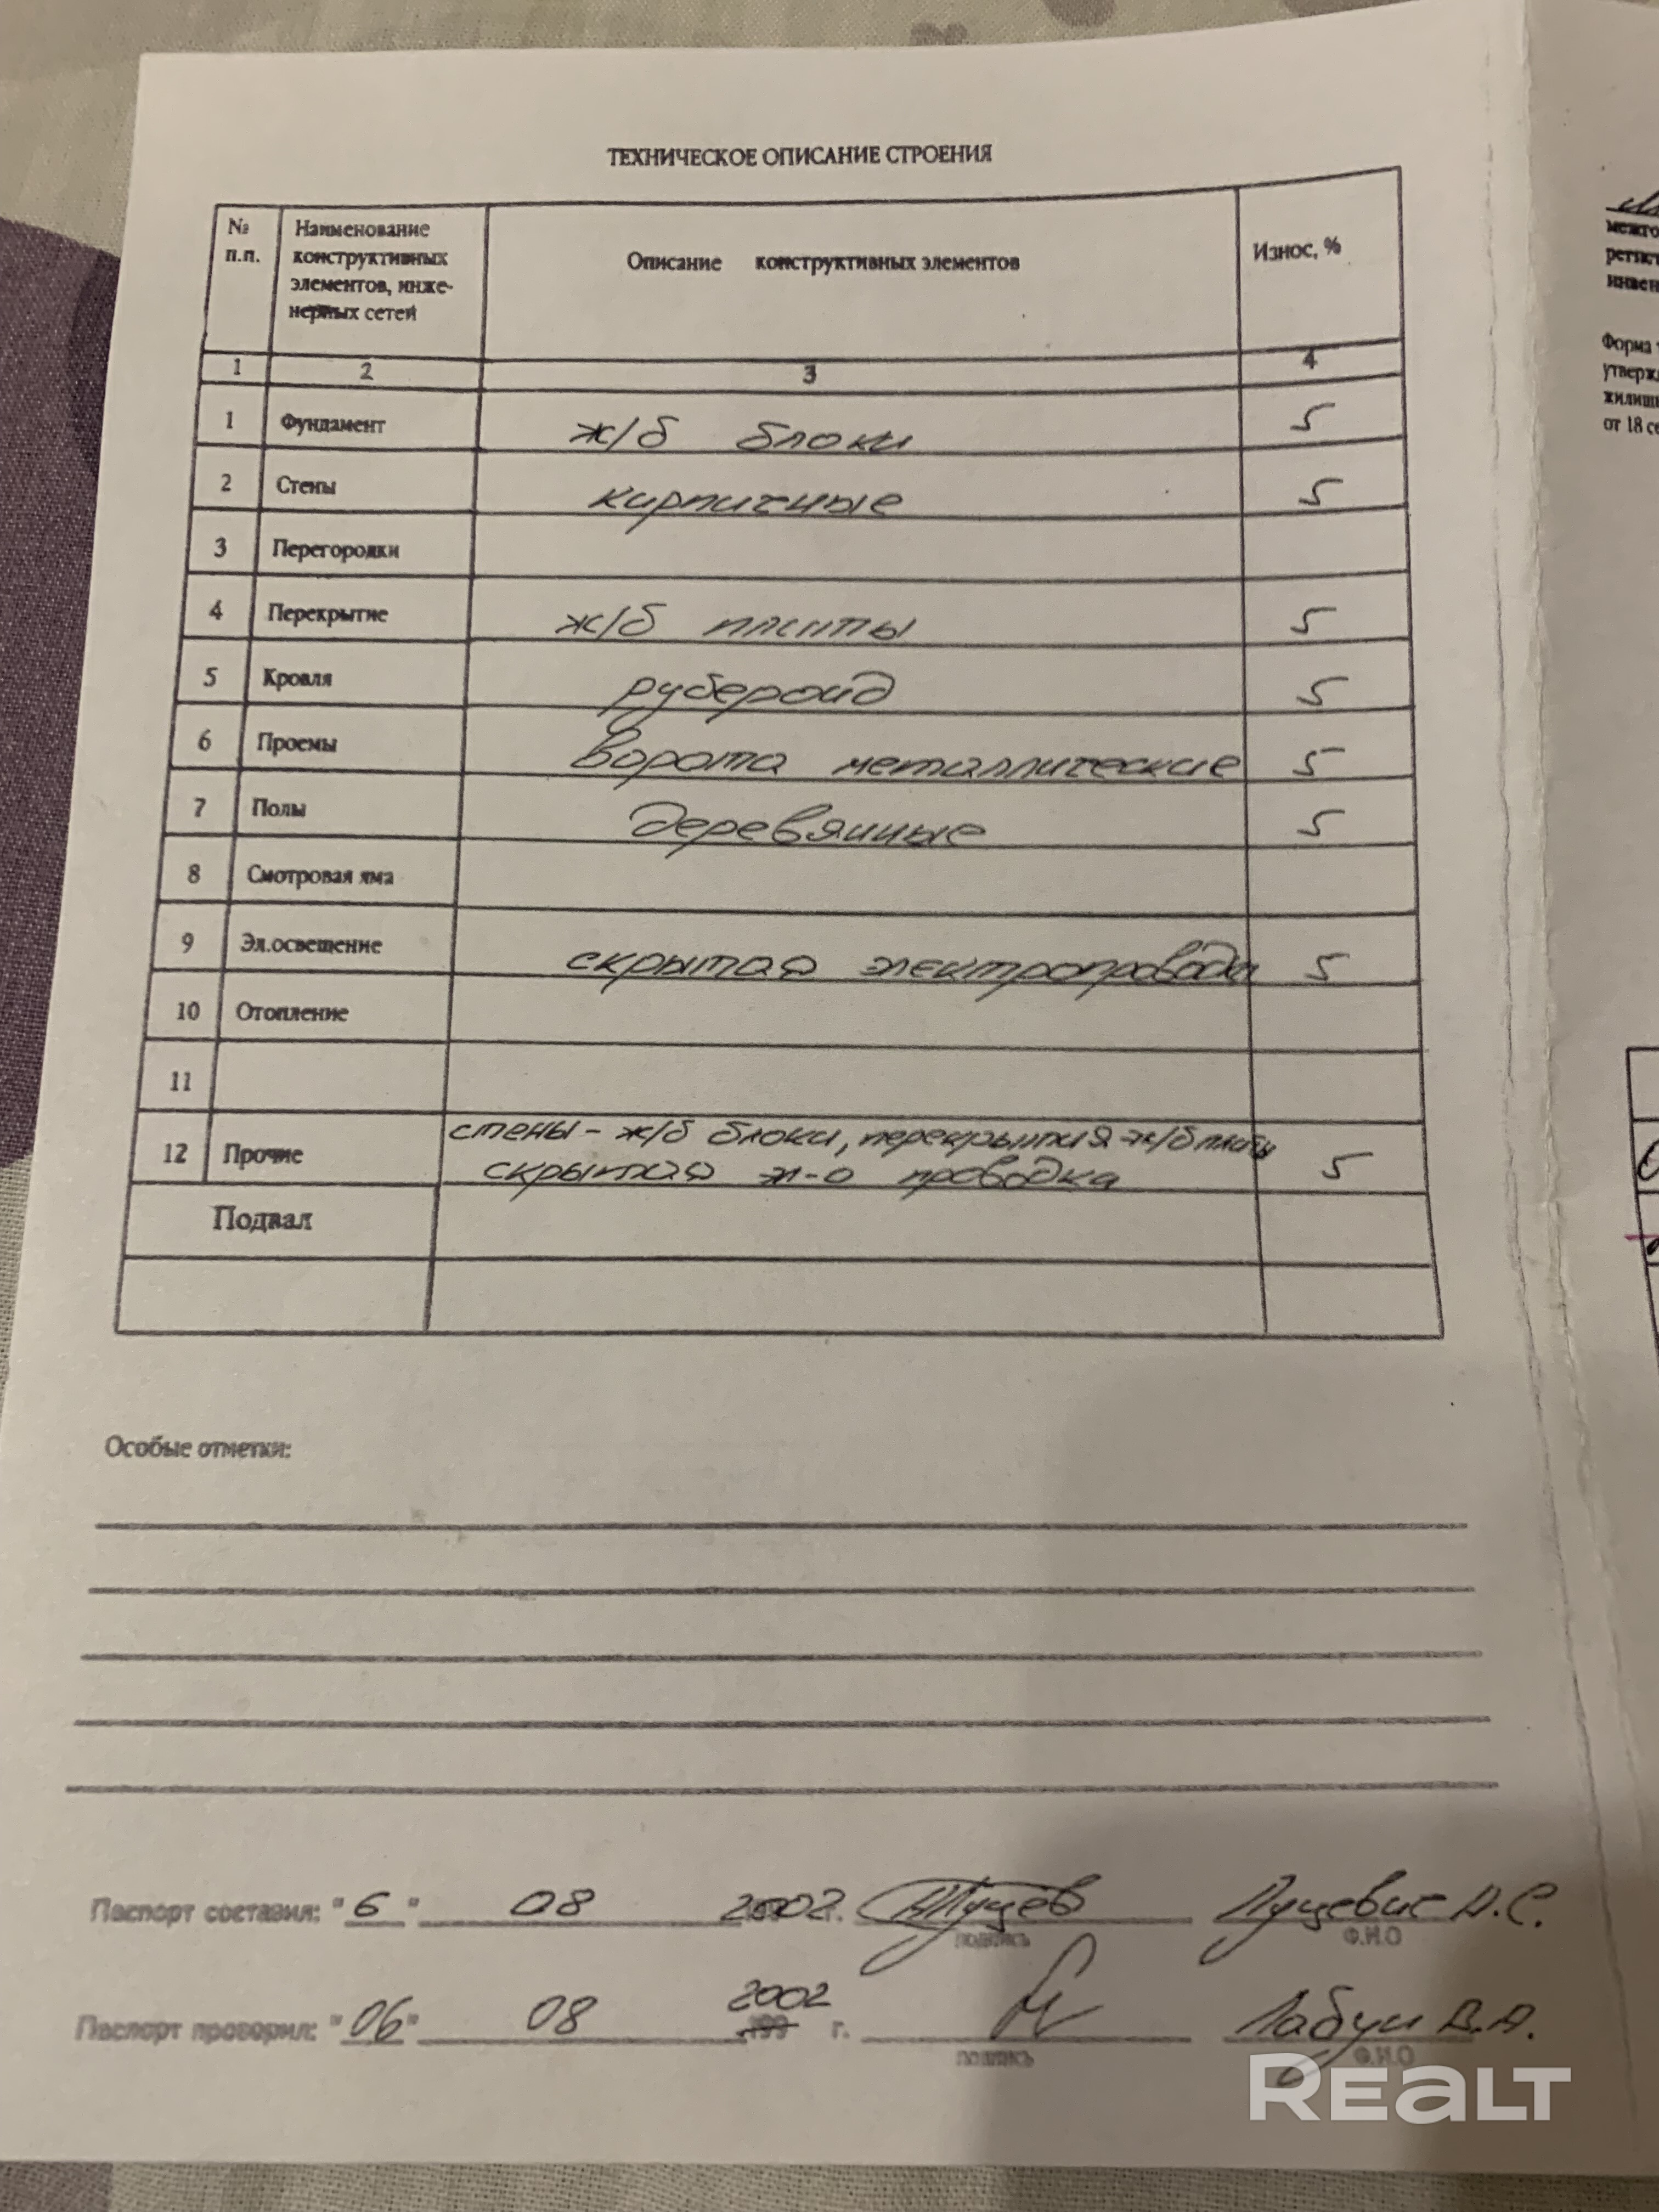 ТЕХНИЧЕСКОЕ ОПИСАНИЕ СТРОЕНИЯ
№ п.п.
Наименование
конструктивных
элементов, инже-
нерных сетей
Описание конструктивных элементов
Износ, %
1 2 3 4
1 Фундамент ж/б блоки 5
2 Стены кирпичные 5
3 Перегородки
4 Перекрытие ж/б плиты 5
5 Кровля рубероид 5
6 Проемы ворота металлические 5
7 Полы деревянные 5
8 Смотровая яма
9 Эл.освещение скрытая электропроводка 5
10 Отопление
11
стены - ж/б блоки, перекрытия - ж/б плиты
12 Прочие скрытая эл-о проводка 5
Подвал
Особые отметки:
Паспорт составил: "6" 08 2002 г. Луцевич А.С.
подпись Ф.И.О
2002
Паспорт проверил: "06" 08 199 г. В.А.
подпись Ф.И.О
межго
регист
инвен
Форма
утверж
жилищ
от 18 се
REALT